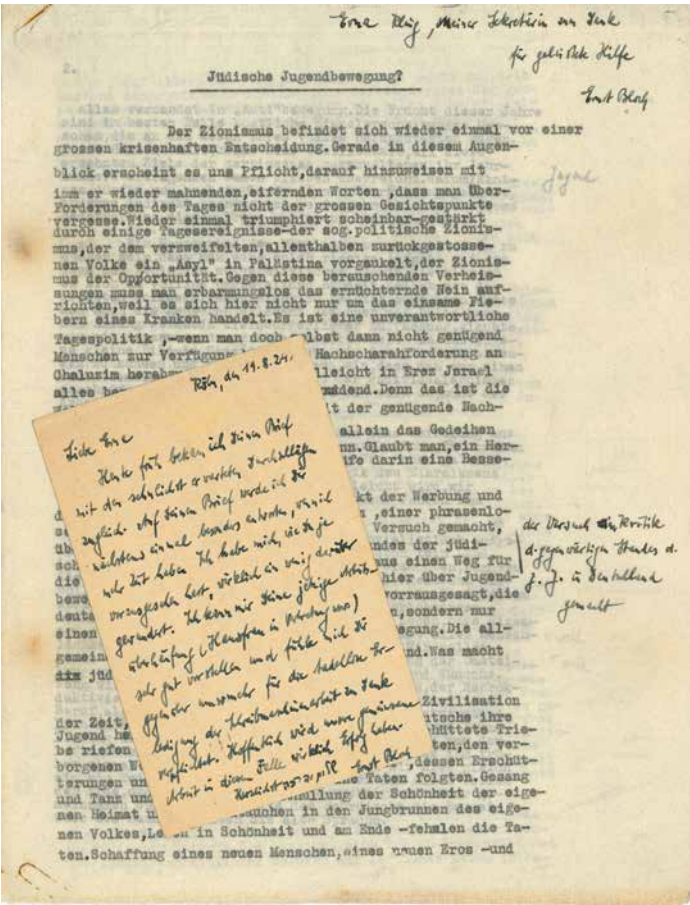 Erna Klug, meiner Sekretärin zum Dank
für geleistete Hilfe
Ernst Bloch
2.
Jüdische Jugendbewegung?
Der Zionismus befindet sich wieder einmal vor einer
grossen krisenhaften Entscheidung.Gerade in diesem Augen-
blick erscheint es uns Pflicht,darauf hinzuweisen mit
imm er wieder mahnenden,eifernden Worten ,dass man über-
Forderungen des Tages nicht der grossen Gesichtspunkte
vergesse.Wieder einmal triumphiert scheinbar-gestärkt
durch einige Tagesereignisse-der sog.politische Zionis-
mus,der dem verzweifelten,allenthalben zurückgestosse-
nen Volke ein „Asyl" in Palästina vorgaukelt,der Zionis-
mus der Opportunität.Gegen diese berauschenden Verheis-
sungen muss man erbarmungslos das ernüchternde Nein auf-
richten,weil es sich hier nicht nur um das einsame Fie-
bern eines Kranken handelt.Es ist eine unverantwortliche
Tagespolitik ,-wenn man doch selbst dann nicht genügend
Menschen zur Verfügung
Hachscharahforderung an
Chaluzim herab
lleicht in Erez Jsrael
alles
Denn das ist die
t der genügende Nach-
allein das Gedeihen
nn.Glaubt man,ein Her-
fe darin eine Besse-
kt der Werbung und
,einer phrasenlo-
Versuch gemacht,
ndes der jüdi-
us einen Weg für
die
hier über Jugend-
bewe
vorrausgesagt,die
deuts
n,sondern nur
einen
egung.Die all-
gemein
nd.Was macht
jüd
Zivilisation
der Zeit,
utsche ihre
Jugend he
hüttete Trie-
be riefen
ten,den ver-
borgenen W
,dessen Erschüt-
terungen un
Taten folgten.Gesang
und Tanz und
üllung der Schönheit der eige-
nen Heimat u
auchen in den Jungbrunnen des eige-
nen Volkes,Le
n in Schönheit und am Ende -fehlen die Ta-
ten.Schaffung eines neuen Menschen,eines neuen Eros -und
Jugend
der Versuch Kritik
d. gegenwärtigen Standes d.
j. J. in Deutschland
gemacht
Köln, den 19.8.24.
Liebe Erna
Heute früh bekam ich Deinen Brief
mit den sehnlichst erwarteten Durchschlägen
zugleich. Auf Deinen Brief werde ich Dir
nächstens einmal besonders antworten, wenn ich
mehr Zeit habe. Ich habe mich, wie Du ja
vorausgesehen hast, wirklich ein wenig darüber
gewundert. Ich kann mir Deine jetzige Arbeits-
überhäufung (Hausfrau in Vertretung usw.)
sehr gut vorstellen und fühle mich Dir
gegenüber umsomehr für die tadellose Er-
ledigung der Schreibmaschinenarbeit zu Dank
verpflichtet. Hoffentlich wird unsere gemeinsame
Arbeit in diesem Falle wirklich Erfolg haben.
Herzlichst Ernst Bloch